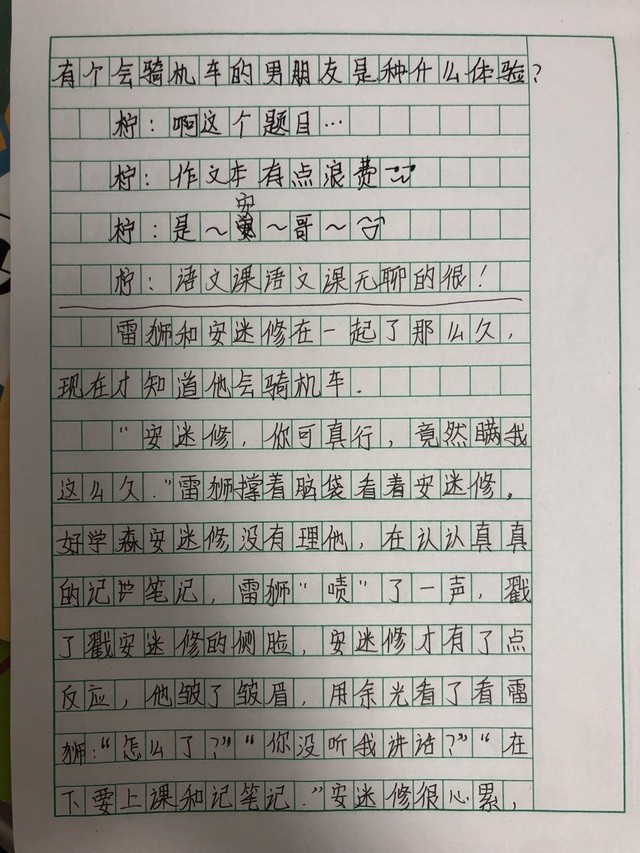 有个会骑机车的男朋友是种什么体验?
柠:啊这个题目…
柠:作文本有点浪费
安
柠:是～～哥～
柠:语文课语文课无聊的很!
雷狮和安迷修在一起了那么久,
现在才知道他会骑机车.
“安迷修,你可真行,竟然瞒我
这么久.”雷狮撑着脑袋看着安迷修。
好学森安迷修没有理他,在认认真真
的记笔记,雷狮“啧”了一声,戳
了戳安迷修的侧脸,安迷修才有了点
反应,他皱了皱眉,用余光看了看雷
狮:“怎么了?”“你没听我讲话?”“在
下要上课和记笔记.”安迷修很心累,